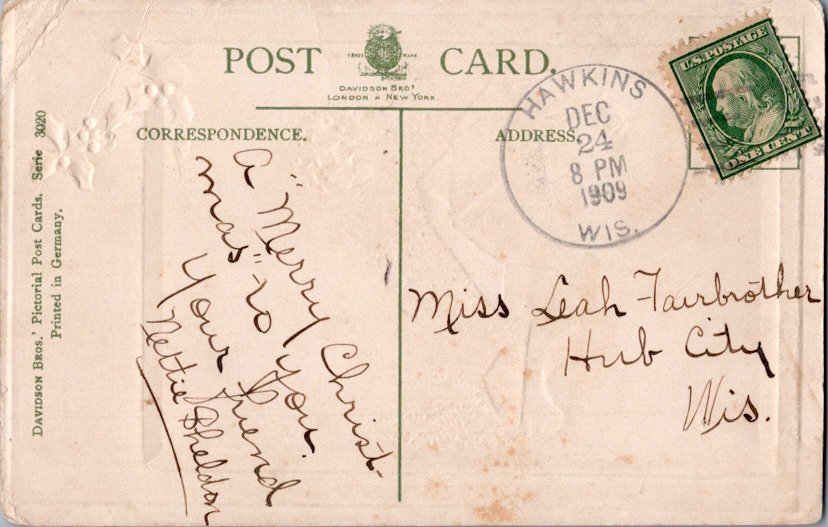 POST CARD.
TRADE MARK
DAVIDSON BROS
LONDON & NEW YORK.
CORRESPONDENCE.
ADDRESS.
DAVIDSON BROS.' Pictorial Post Cards. Serie 3020
Printed in Germany.
A "Merry Christ-
mas" to you.
Your friend
Nettie Sheldon
HAWKINS
DEC
24
8 PM
1909
WIS.
U.S. POSTAGE
ONE CENT
Miss Leah Fairbrother
Hub City
Wis.